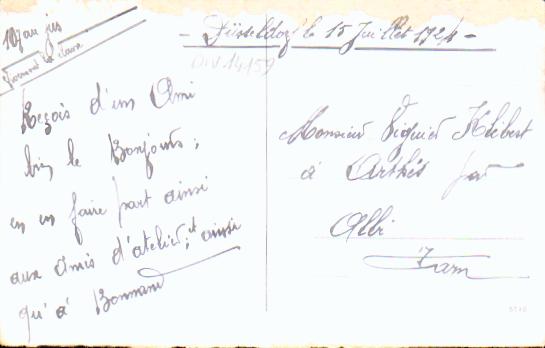 - Düsseldorf le 15 Juillet 1924 -
DIV 14/59
Reçois d'un Ami
bien le Bonjours;
en en faire part ainsi
aux Amis d'atelier; et ainsi
qu'à Bonnand
Monsieur Viguier Hébert
à Arthès par
Albi
Tarn